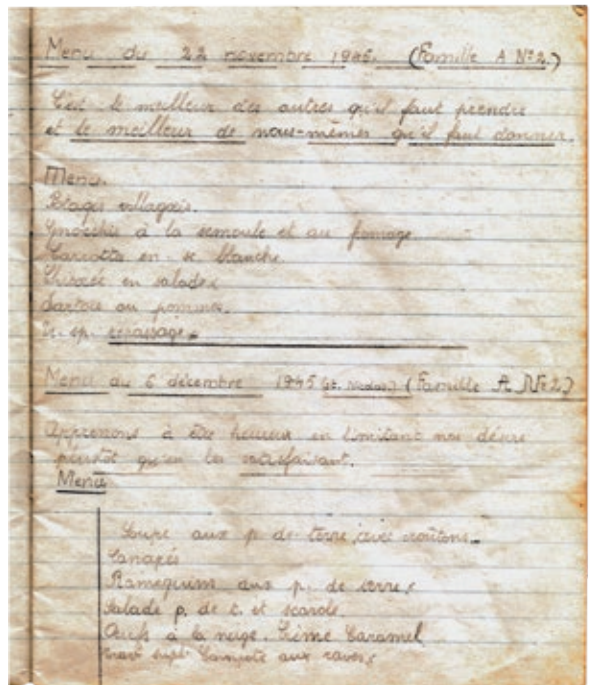 Menu du 22 novembre 1945. (Famille A Nº2.)
C'est le meilleur des autres qu'il faut prendre
et le meilleur de nous-mêmes qu'il faut donner.
Menu.
Potages villageois.
Gnocchis à la semoule et au fromage.
Carottes en s. blanche.
en salade.
aux pommes.
repassage.
Menu du 6 décembre 1945 (St. Nicolas) (Famille A Nº2)
Apprenons à être heureux en limitant nos désirs
plutôt qu'en les satisfaisant.
Menu
Soupe aux p. de terre avec croûtons.
Canapés
Ramequins aux p. de terre.
Salade p. de t. et scarole
Œufs à la neige. Crème Caramel
Trav. supl. Compote aux raves.